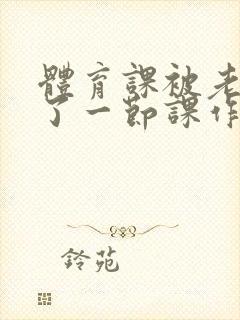 體育課被老
了一節課作
鈴苑